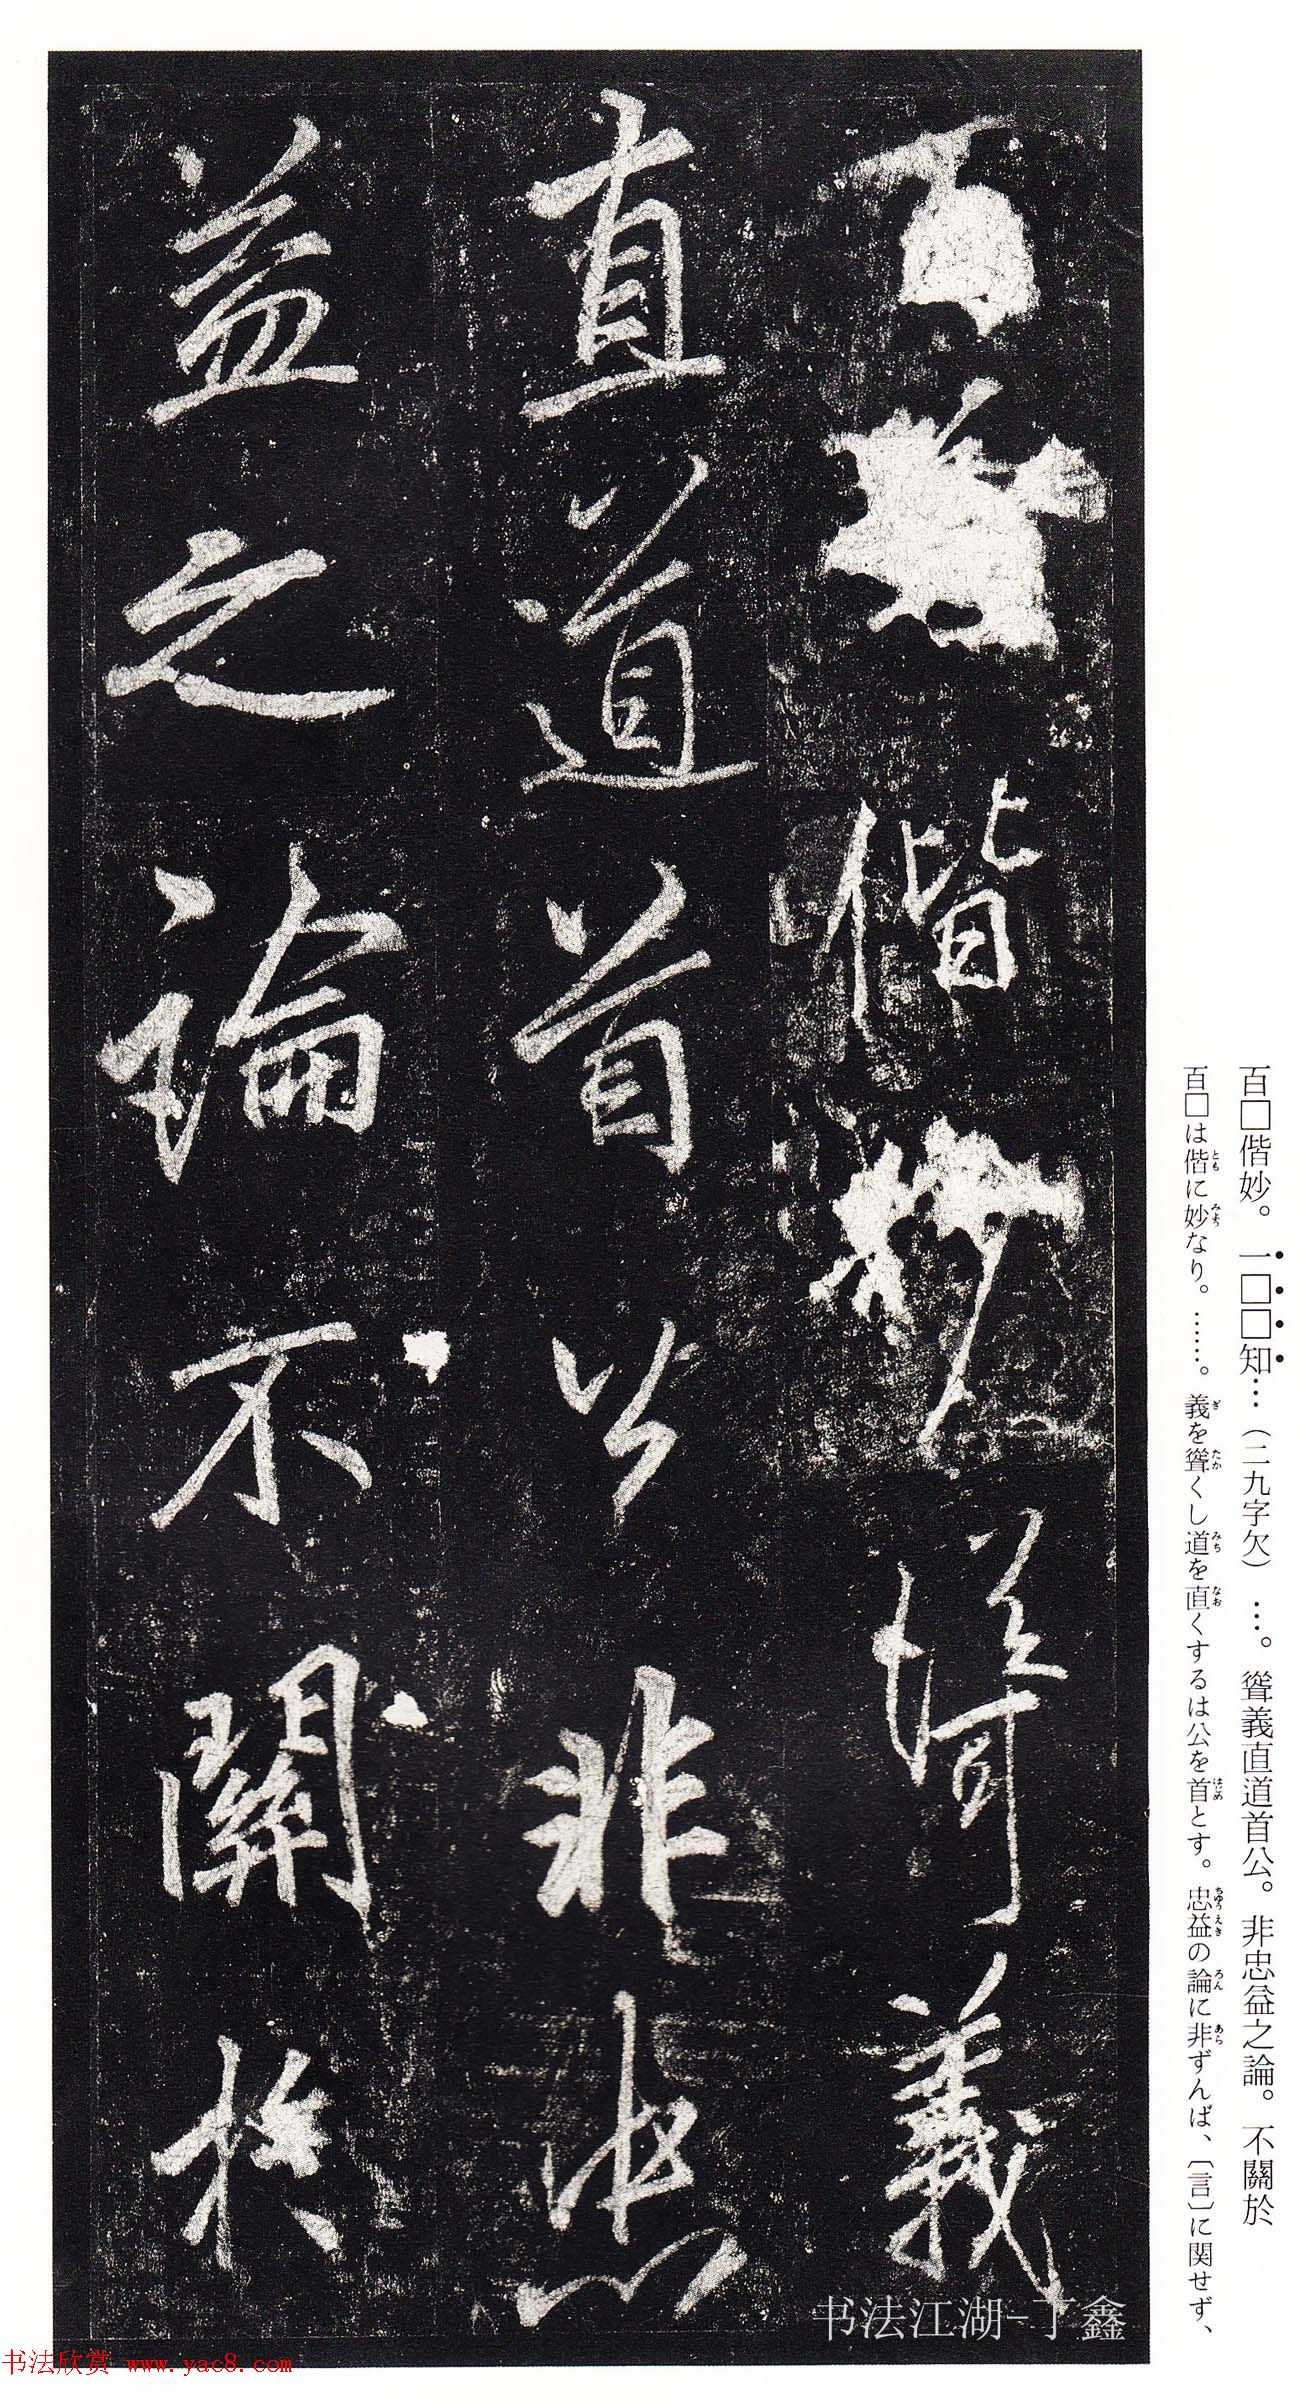 百□偕妙。一□□知…（二九字欠）…。聳義直道首公。非忠益之論。不關於
百□は偕に妙なり。……。義を聳くし道を直くするは公を首とす。忠益の論に非ずんば、〔言〕に関せず、
百偕妙聳義
直道首公非忠
益之論不關於
书法江湖-丁鑫
书法欣赏 www.yac8.com